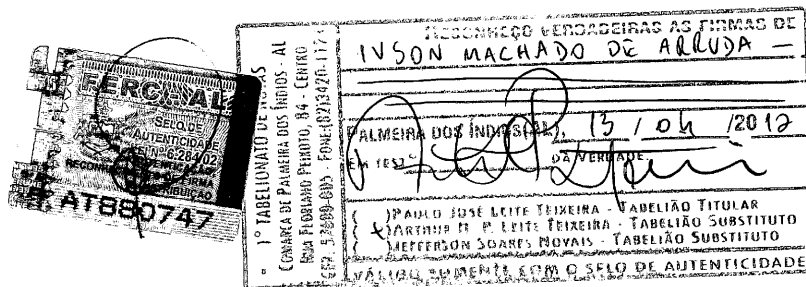 FERC-AL
SELO DE
AUTENTICIDADE
RECONHECIMENTO DE FIRMA
AT880747
1º TABELIONATO DE NOTAS
COMARCA DE PALMEIRA DOS ÍNDIOS - AL
RUA FLORIANO PEIXOTO, 84 - CENTRO
RECONHEÇO VERDADEIRAS AS FIRMAS DE
IVSON MACHADO DE ARRUDA —
PALMEIRA DOS ÍNDIOS(AL), 13 / 04 /2012
EM TESTº DA VERDADE
( )PAULO JOSÉ LEITE TEIXEIRA - TABELIÃO TITULAR
(x)ARTHUR M. P. LEITE TEIXEIRA - TABELIÃO SUBSTITUTO
( )JEFFERSON SOARES NOVAIS - TABELIÃO SUBSTITUTO
VÁLIDO SOMENTE COM O SELO DE AUTENTICIDADE